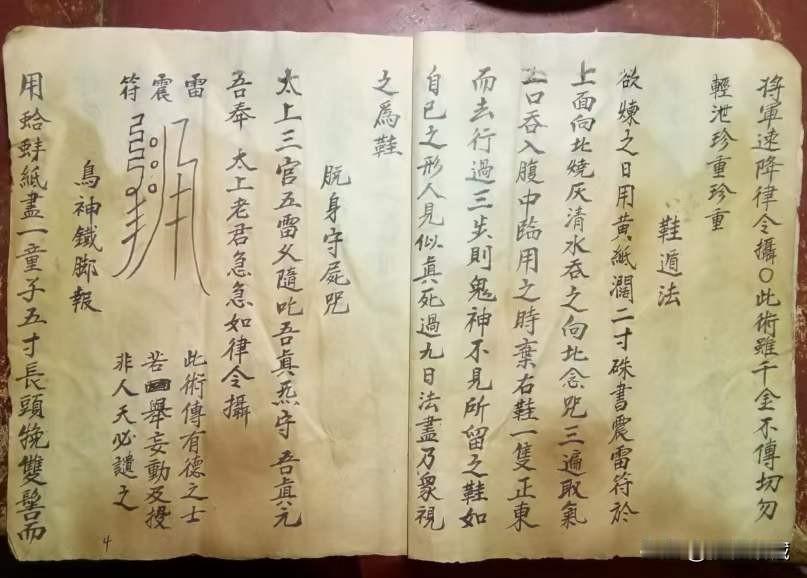 将軍速降律令攝〇此術雖千金不傳切勿
輕泄珍重珍重
鞋遁法
欲煉之日用黃紙濶二寸硃書震雷符於
上面向北燒灰清水吞之向北念咒三遍取氣
口吞入腹中臨用之時棄右鞋一隻正東
而去行過三步則鬼神不見所留之鞋如
自己之形人見似真死過九日法盡乃衆視
之為鞋
脱身守屍咒
太上三官五雷父隨叱吾真炁守吾真元
吾奉太上老君急急如律令攝
雷震符
此術傳有德之士
若舉妄動及授
非人天必譴之
鳥神鐵脚報
用蛤蚌紙畫一童子五寸長頭挽雙髻而
4